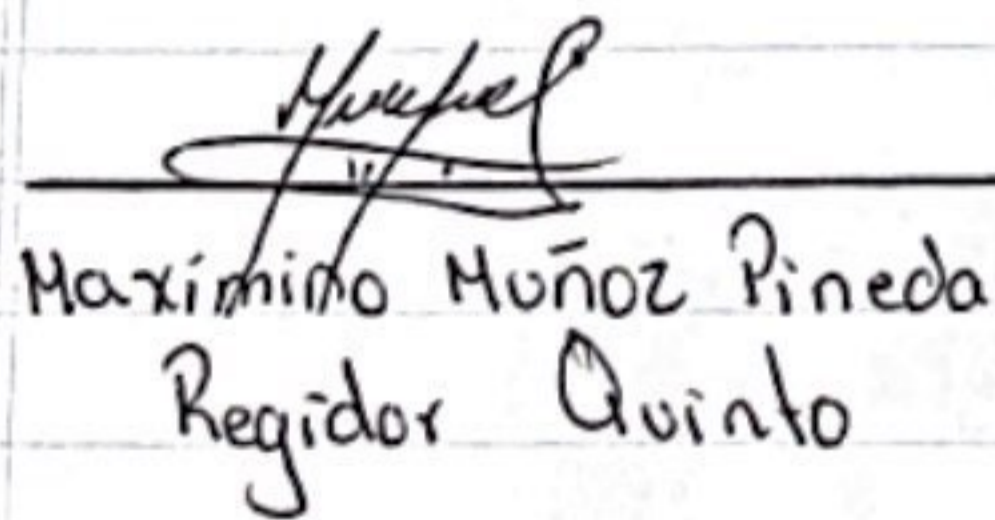 Maxímino Muñoz Pineda
Regidor Quinto